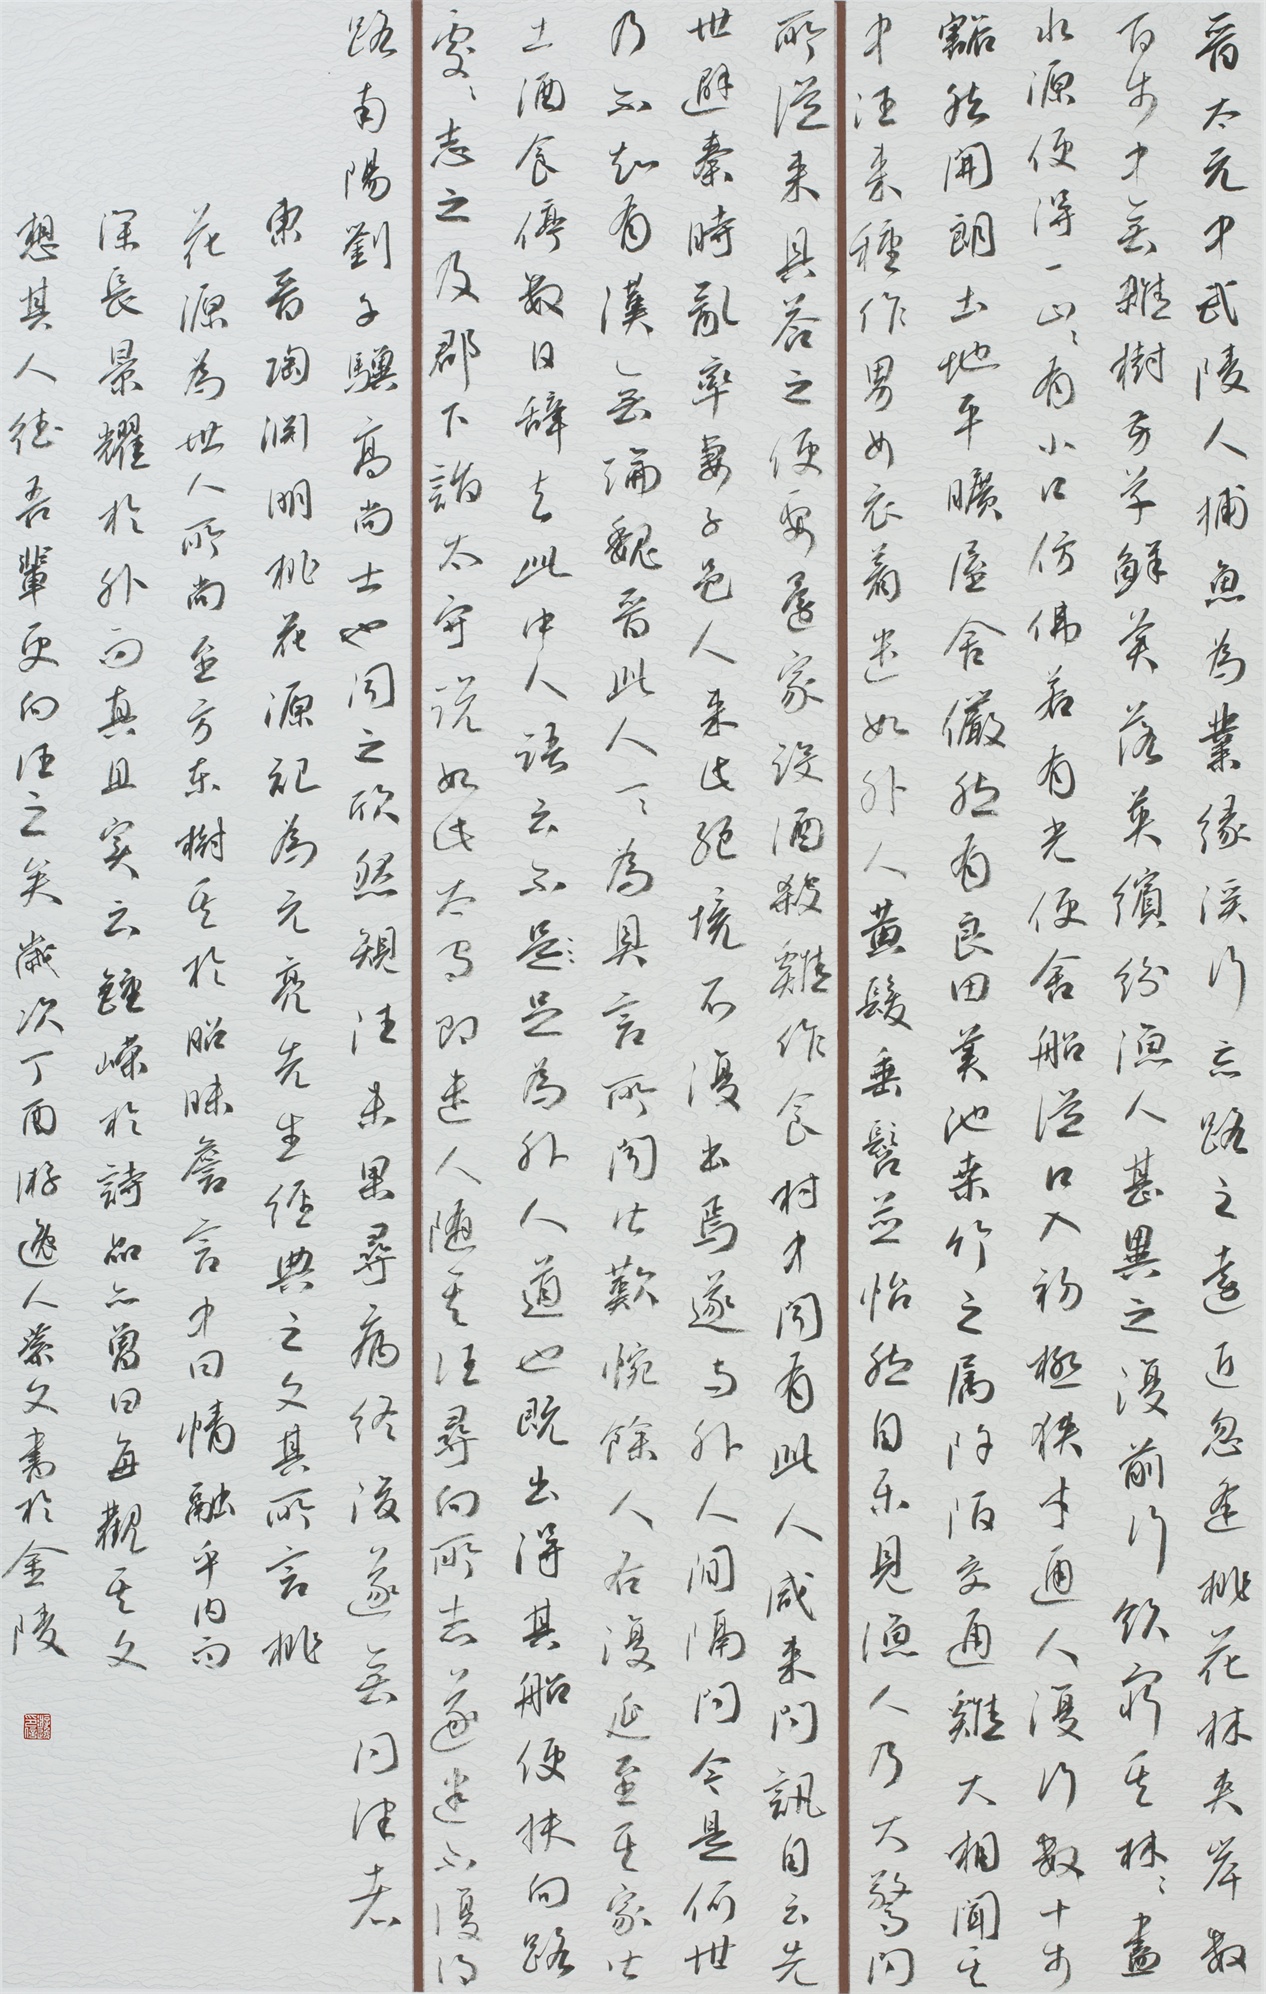 晉太元中武陵人捕魚為業緣溪行忘路之遠近忽逢桃花林夾岸數
百步中無雜樹芳草鮮美落英繽紛漁人甚異之復前行欲窮其林〻盡
水源便得一山〻有小口仿佛若有光便舍船從口入初極狹才通人復行數十步
豁然開朗土地平曠屋舍儼然有良田美池桑竹之属阡陌交通雞犬相聞其
中往来種作男女衣着悉如外人黄髮垂髫並怡然自乐見漁人乃大驚問
所從来具答之便要還家設酒殺雞作食村中聞有此人咸来問訊自云先
世避秦時亂率妻子邑人来此絕境不復出焉遂与外人間隔問今是何世
乃不知有漢〻無論魏晉此人一一為具言所聞皆歎惋餘人各復延至其家皆
出酒食停數日辞去此中人語云不足〻為外人道也既出得其船便扶向路
處〻志之及郡下詣太守說如此太守即遣人隨其往尋向所志遂迷不復得
路南陽劉子驥高尚士也聞之欣然規往未果尋病终後遂無问津者
東晉陶淵明桃花源記為元亮先生經典之文其所言桃
花源為世人所尚至方东樹其於昭昧詹言中曰情融乎内而
深長景耀於外而真且实云鍾嶸於詩品亦曾曰每觀其文
想其人德吾輩更向往之矣歲次丁酉游逸人荣文書於金陵